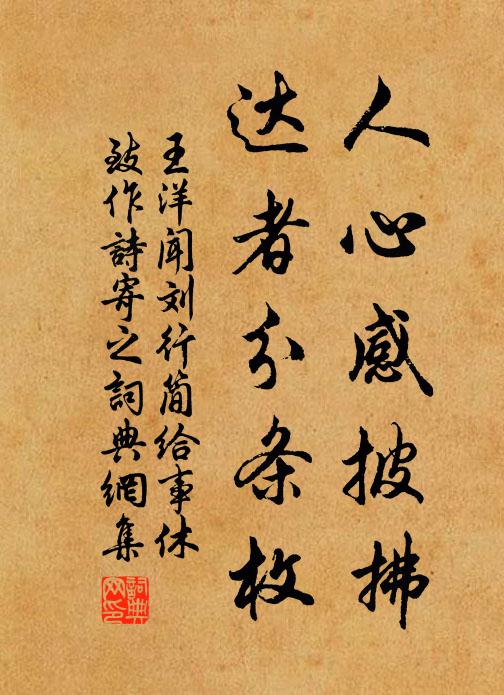 人心感披拂
达者分条枚
王洋闻刘行简给事休
致作詩寄之詞典網集
詞典
网印